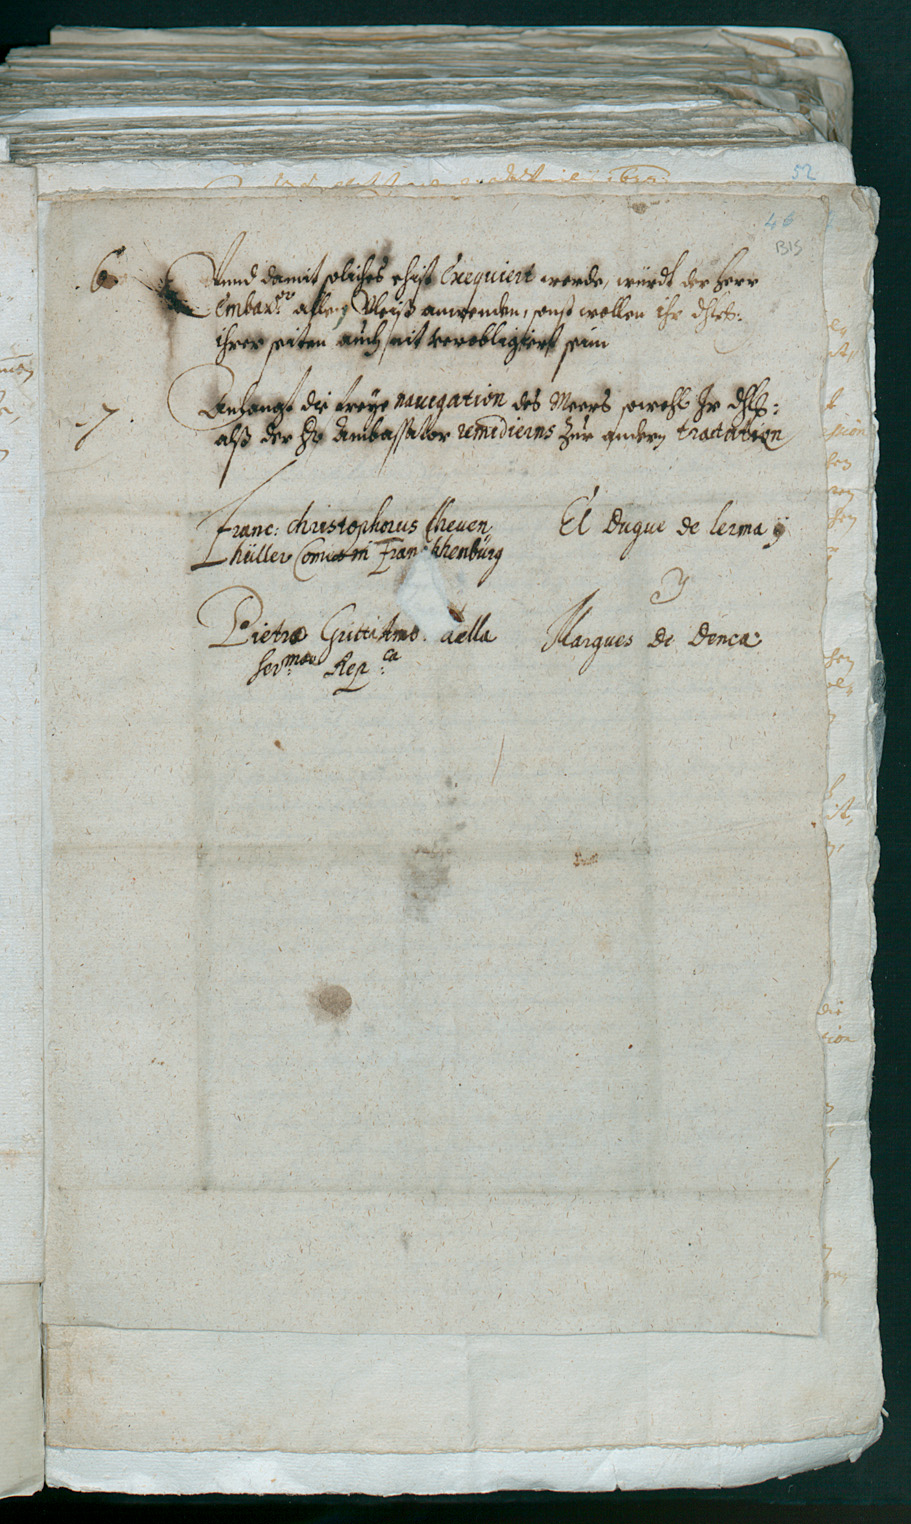 52
46
BIS
6. Vnnd damit soliches ehist Exequiert werde, würdt der Herr
Embax.or allen Vleiß anwenden, sonst wollen Ihr dhlt:
ihrer seiten auch nit verobligiert sein
7. Anlangt die freye nauigation des Meers sowohl Ir dhlt:
alß der Hr Ambassator remidierns zur andern tractation
Franc: Christophorus Kheuen
hüller Comes in Frankhenburg
El Duque de lerma y
Y
Pietro Gritti Amb. della
Ser.ma Rep.ca
Marques de Denia: